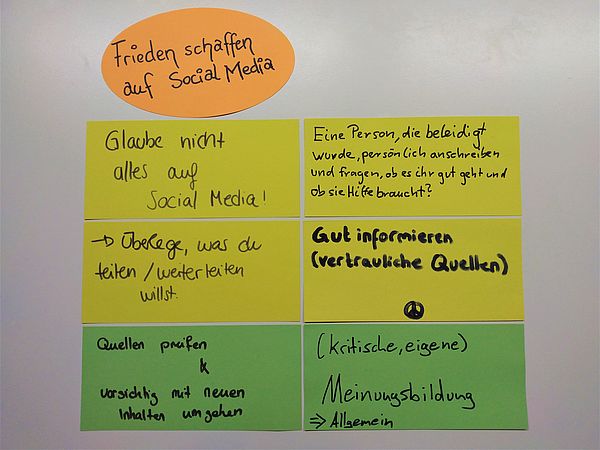 Frieden schaffen
auf Social Media
Glaube nicht
alles auf
Social Media!
Eine Person, die beleidigt
wurde, persönlich anschreiben
und fragen, ob es ihr gut geht und
ob sie Hilfe braucht?
→ Überlege, was du
teilen/weiterleiten
willst.
Gut informieren
(vertrauliche Quellen)
Quellen prüfen
&
vorsichtig mit neuen
Inhalten umgehen
(kritische, eigene)
Meinungsbildung
⇒ Allgemein